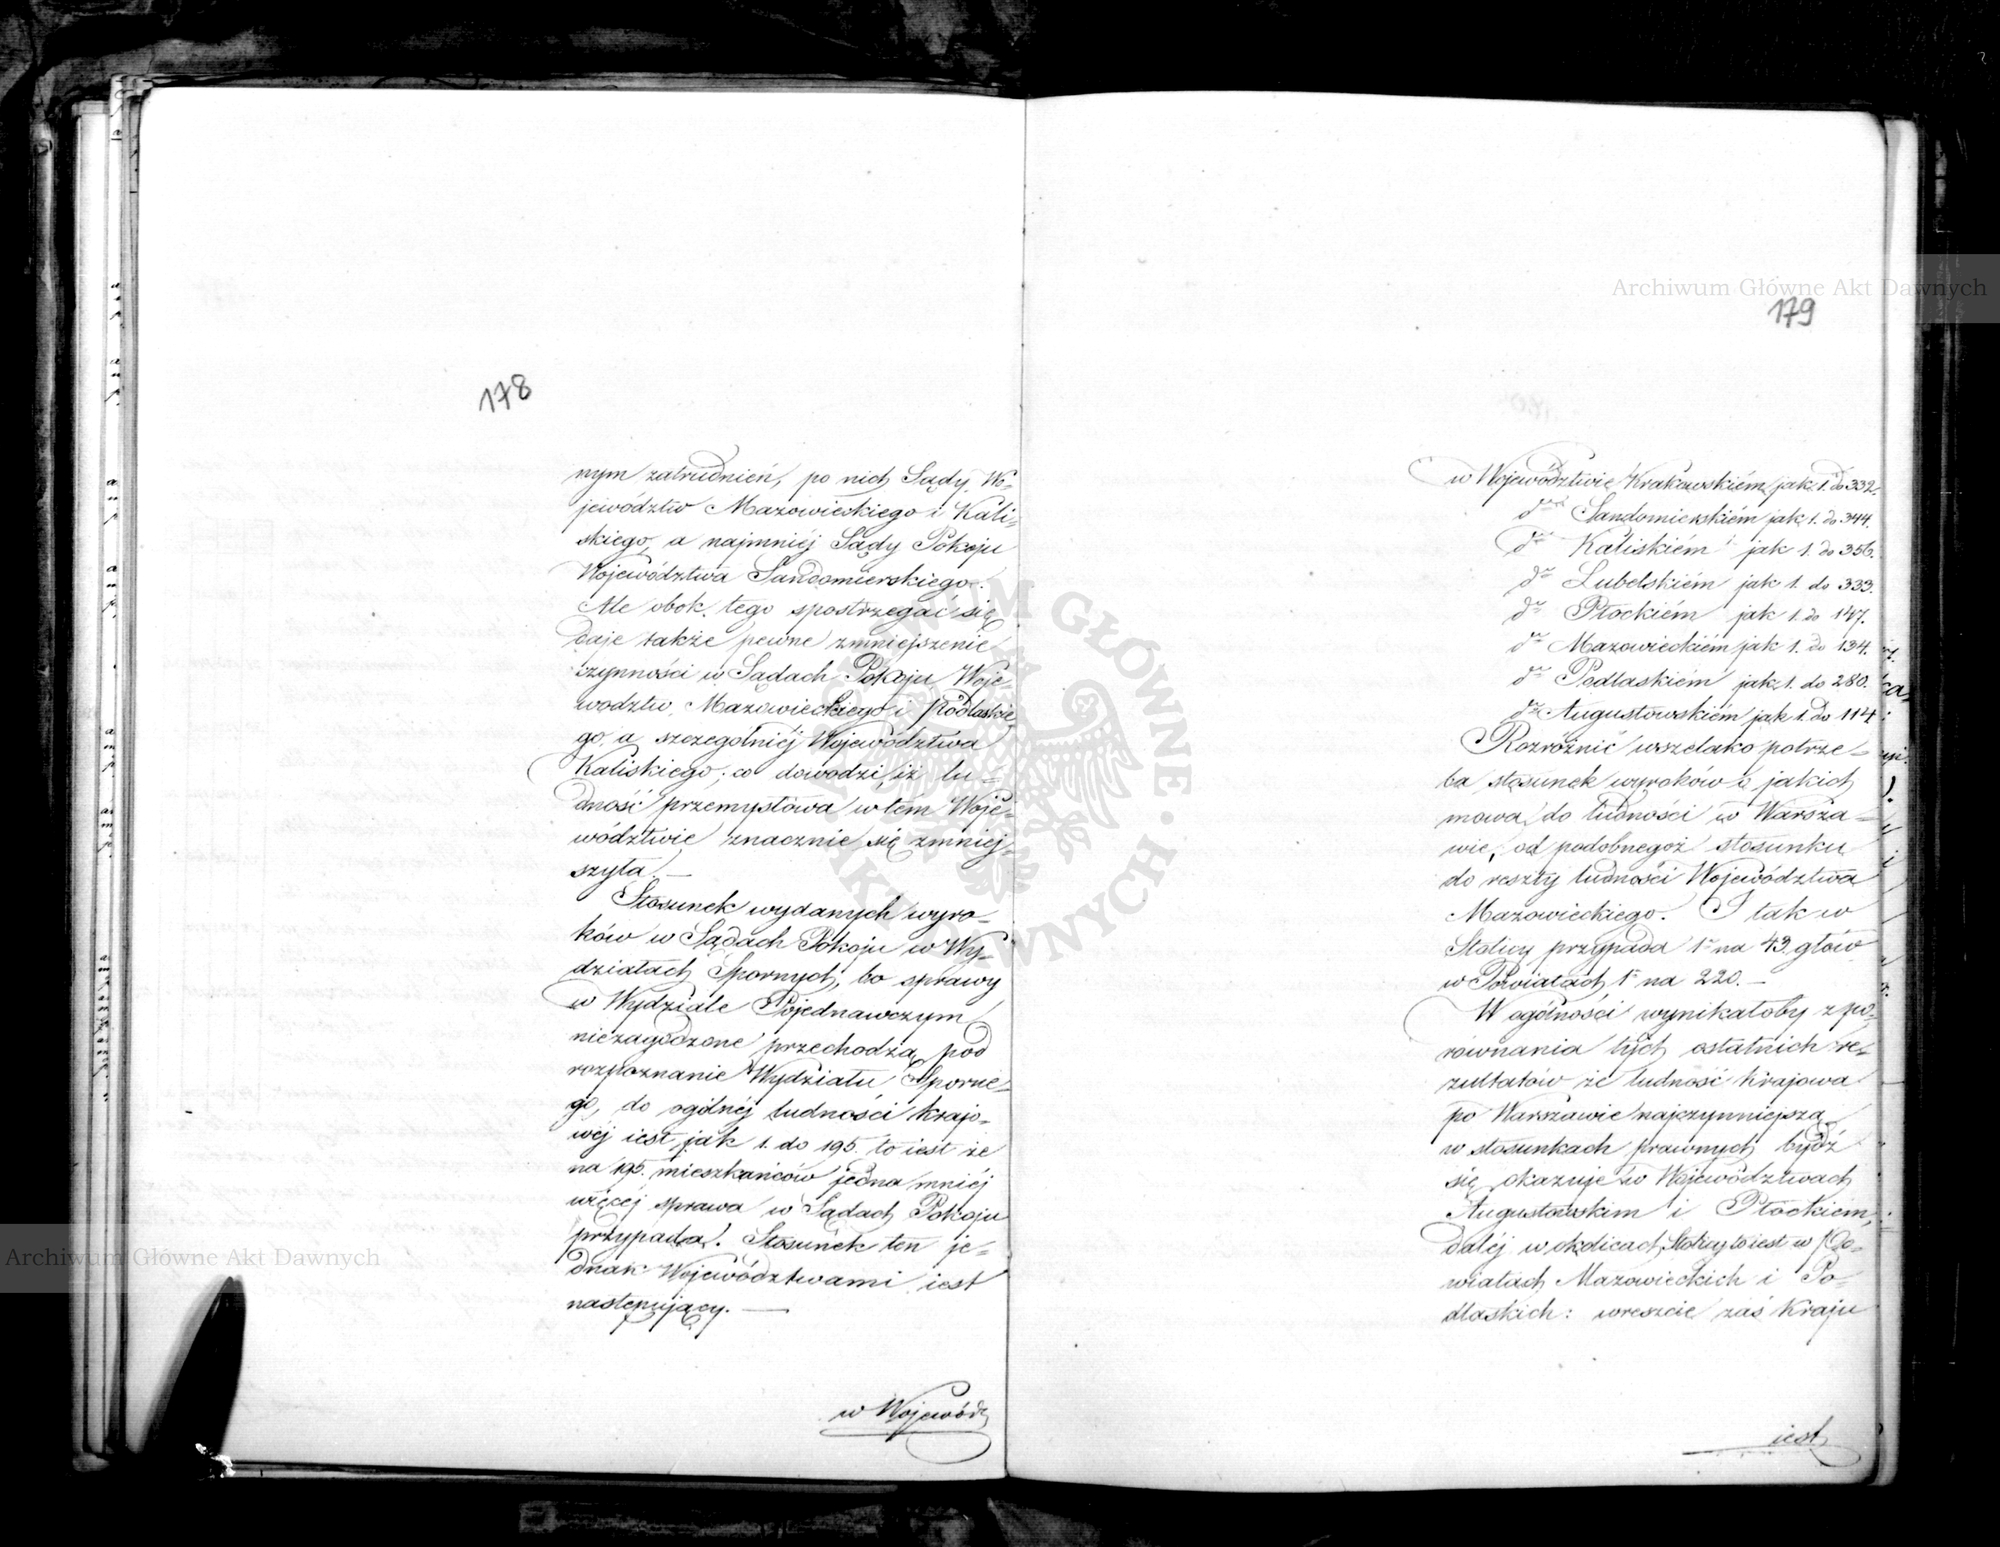 178
nym zatrudnień, po nich Sądy Wo-
jewództw Mazowieckiego i Kali-
skiego, a najmniéj Sądy Pokoju
Województwa Sandomierskiego.
Ale obok tego spostrzegać się
daje także pewne zmniejszenie
czynności w Sądach Pokoju Woje-
wodztw Mazowieckiego i Podlaskie
go, a szczególniéj Województwa
Kaliskiego; co dowodzi, iż lu-
dność przemysłowa w tém Woje-
wództwie znacznie się zmniej-
szyła. —
Stosunek wydanych wyro-
ków w Sądach Pokoju w Wy-
działach Spornych, bo sprawy
w Wydziale Pojednawczym
niezagodzone przechodzą pod
rozpoznanie Wydziału Sporne-
go, do ogólnéj ludności krajo-
wéj iest, jak 1. do 195. to iest że
na 195. mieszkańców jedna mniéj
więcéj sprawa w Sądach Pokoju
przypada. Stosunek ten je-
dnak Województwami iest
następujący. —
w Wojewódz
179
w Województwie Krakowskiém jak 1. do 332.
dto Sandomierskiém jak 1. do 344.
dto Kaliskiém jak 1. do 356.
dto Lubelskiém jak 1. do 333.
dto Płockiém jak 1. do 147.
dto Mazowieckiém jak 1. do 134.
dto Podlaskiém jak 1. do 280.
dto Augustowskiém jak 1. do 114
Rozróżnić wszelako potrze-
ba stosunek wyroków o jakich
mowa, do ludności w Warsza-
wie, od podobnegoż stosunku
do reszty ludności Województwa
Mazowieckiego. I tak w
Stolicy przypada 1n na 43. głów
w Powiatach 1n na 220. —
W ogólności wynikałoby z po-
równania tych ostatnich re-
zultatów że ludność krajowa
po Warszawie najczynniejszą
w stosunkach prawnych bydź
się okazuje w Województwach
Augustowskim i Płockiem,
daléj w okolicach Stolicy to iest w Po-
wiatach Mazowieckich i Po-
dlaskich: wreszcie zaś kraju
iest
Archiwum Główne Akt Dawnych
Archiwum Główne Akt Dawnych